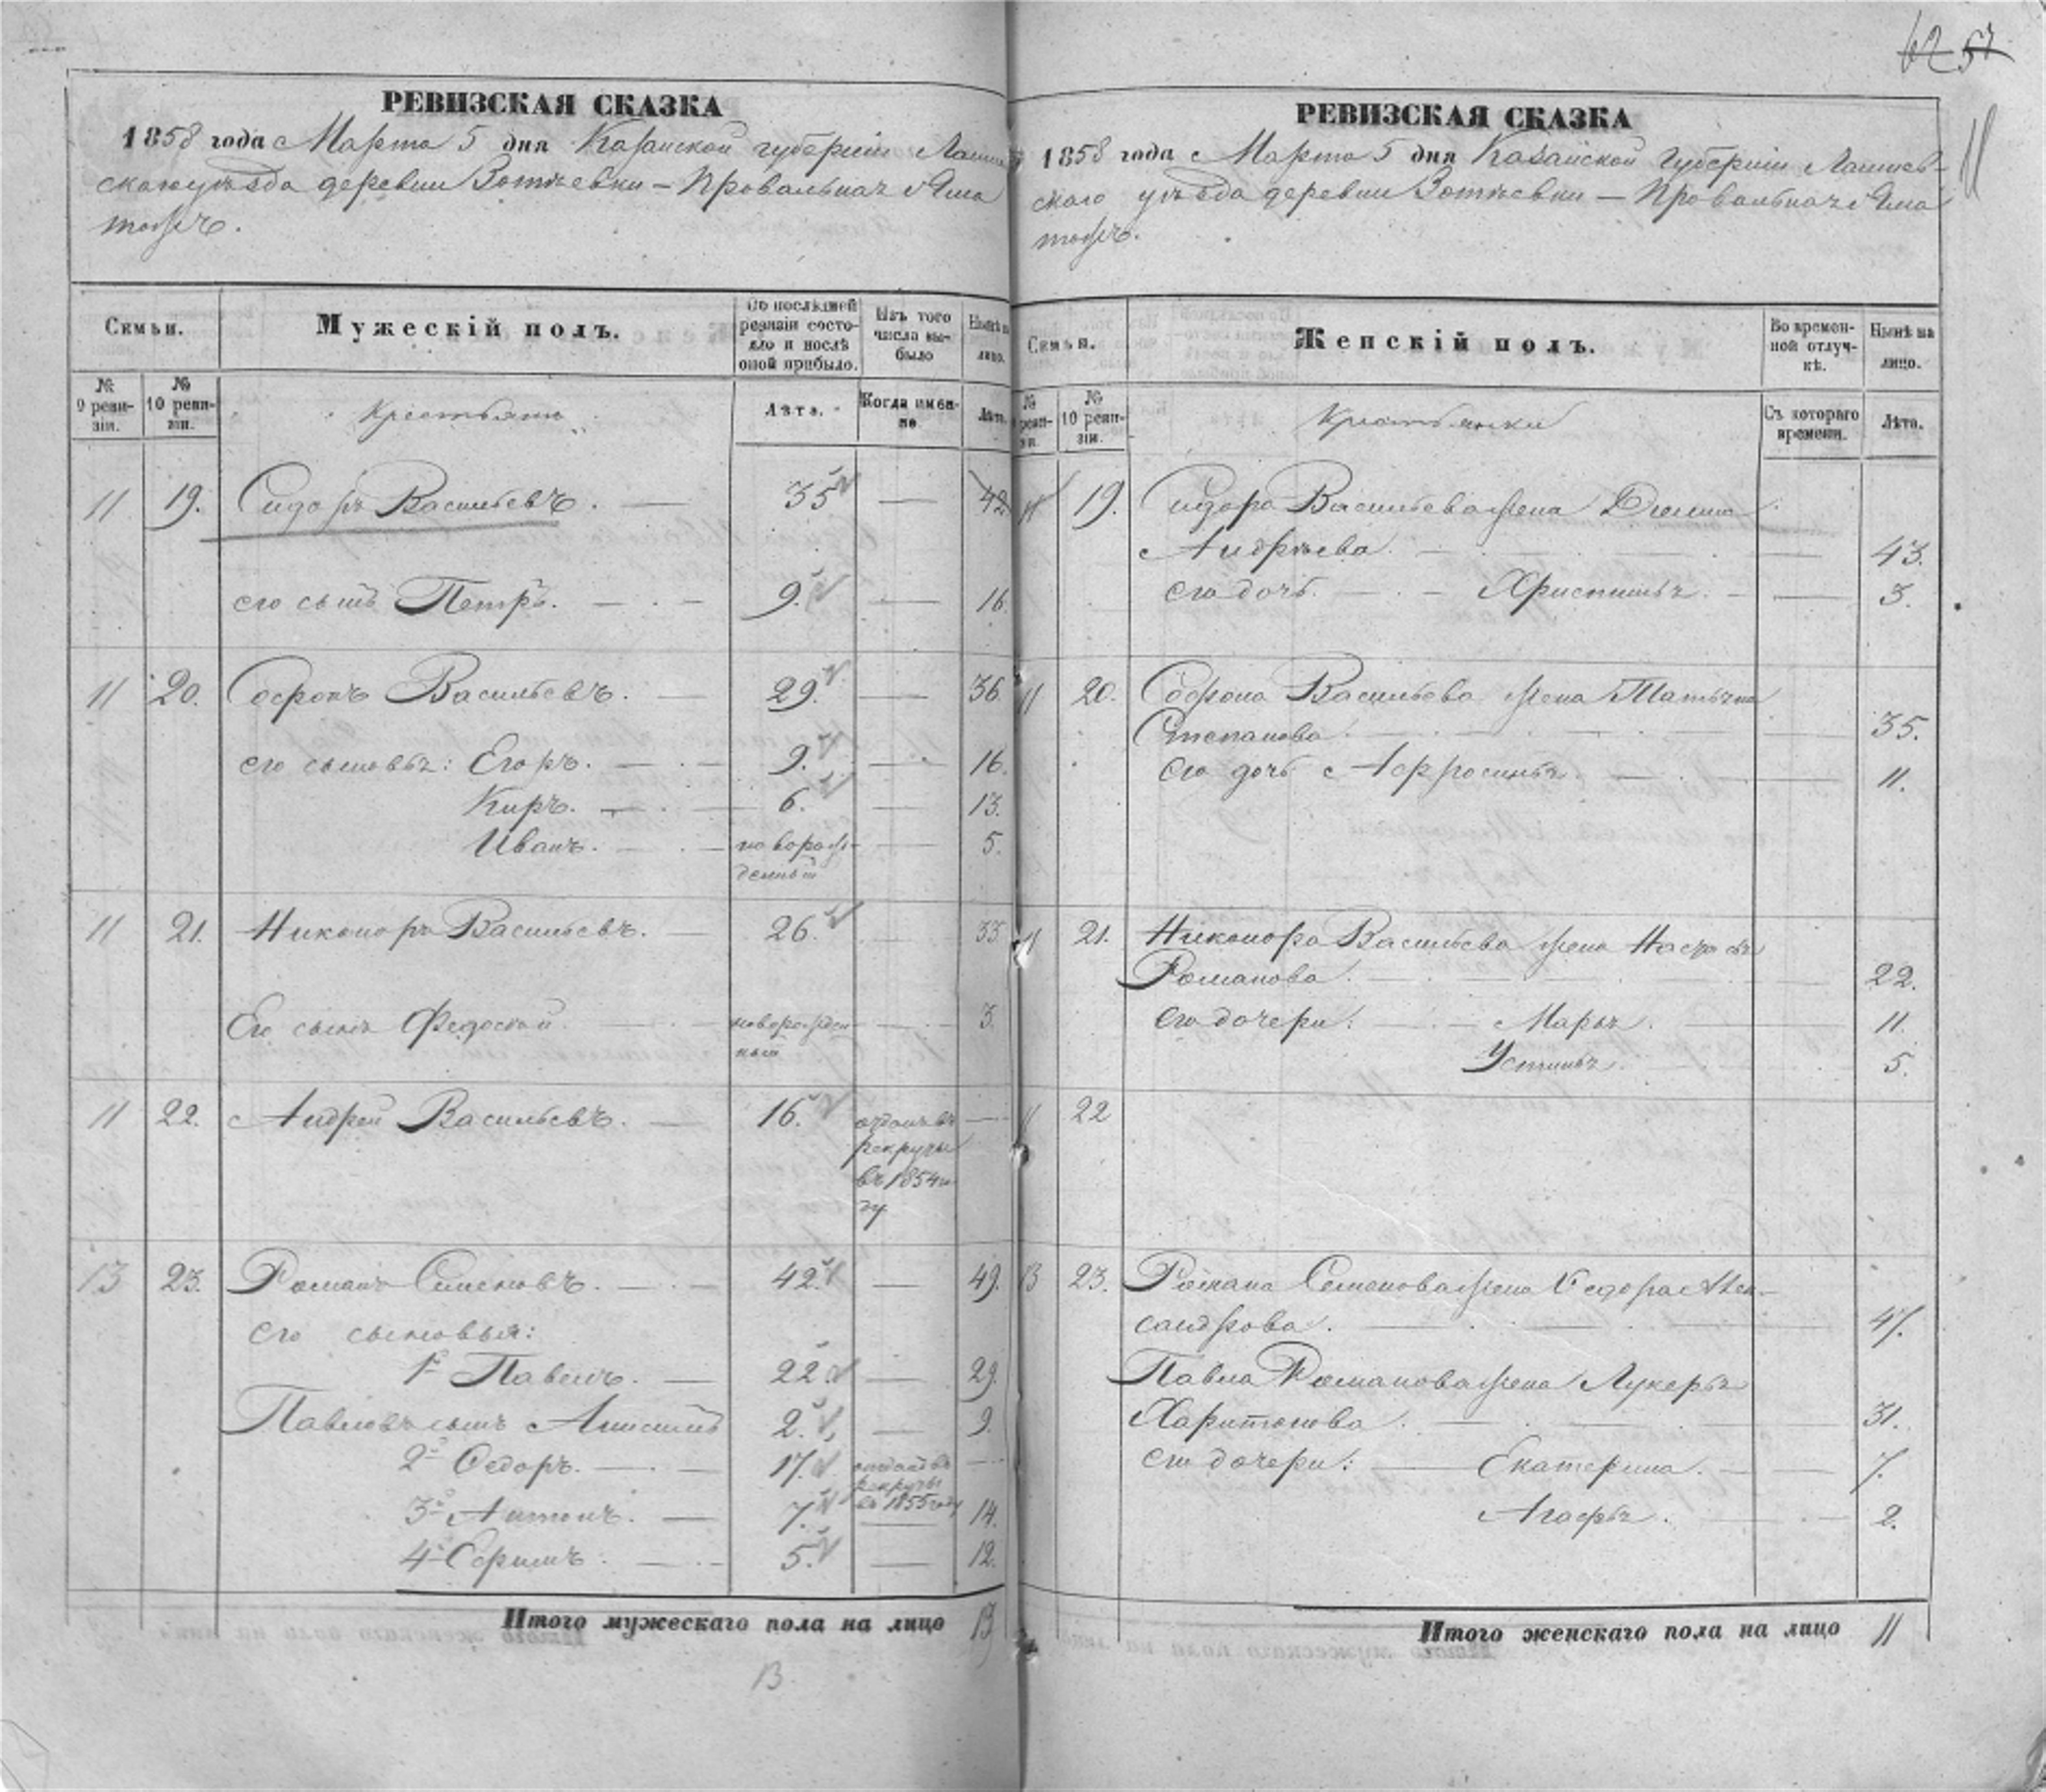 62 57
РЕВИЗСКАЯ СКАЗКА
1858 года Марта 5 дня Казанской губернiи Лаише
скаго уѣзда деревни Зотѣевки — Провальная
тожъ.
Семьи.
Мужескiй полъ.
По послѣдней ревизiи состояло и послѣ оной прибыло.
Изъ того числа выбыло
Нынѣ на лицо.
№ 9 ревизiи.
№ 10 ревизiи.
Крестьяне
Лѣта.
Когда именно.
Лѣта.
11 19. Сидоръ Васильевъ. — 35 — 42
его сынъ Петръ. — 9. — 16.
11 20. Софронъ Васильевъ. — 29. — 36.
его сыновья: Егоръ. — 9. — 16.
Киръ. — 6. — 13.
Иванъ. — новорож- — 5.
денный
11 21. Никоноръ Васильевъ. — 26. 33
Его сынъ Федосей. новорожден — 3.
ный
11 22. Андрей Васильевъ. — 16. отданъ въ —
рекруты
въ 1854 го
ду
13 23. Романъ Семеновъ. — 42. — 49.
его сыновья:
1й Павелъ. — 22 — 29.
Павловъ сынъ Анисимъ 2. — 9.
2й Федоръ. — 17. отданъ въ —
рекруты
въ 1855 году
3й Антонъ. — 7. — 14.
4й Ефимъ. — 5. — 12.
Итого мужескаго пола на лицо 13
13
РЕВИЗСКАЯ СКАЗКА
1858 года Марта 5 дня Казанской губернiи Лаишев-
скаго уѣзда деревни Зотѣевки — Провальная
тожъ.
11
Семьи.
Женскiй полъ.
Во временной отлучкѣ.
Нынѣ на лицо.
№ ревизiи.
№ 10 ревизiи.
Крестьянки
Съ котораго времени.
Лѣта.
11 19. Сидора Васильева жена
Андрѣева. — 43.
его дочь. — Христинья. — 3.
11 20. Софрона Васильева жена Татьяна
Степанова. — 35.
его дочь Афросинья — 11.
11 21. Никонора Васильева жена Настасья
Романова. — 22.
его дочери: — Марья. — 11.
Устинья. 5.
11 22
13 23. Романа Семенова жена Федора Алек-
сандрова. — 47.
Павла Романова жена Лукерья
Харитонова. — 31.
его дочери: — Екатерина. — 7.
Агафья. — 2.
Итого женскаго пола на лицо 11